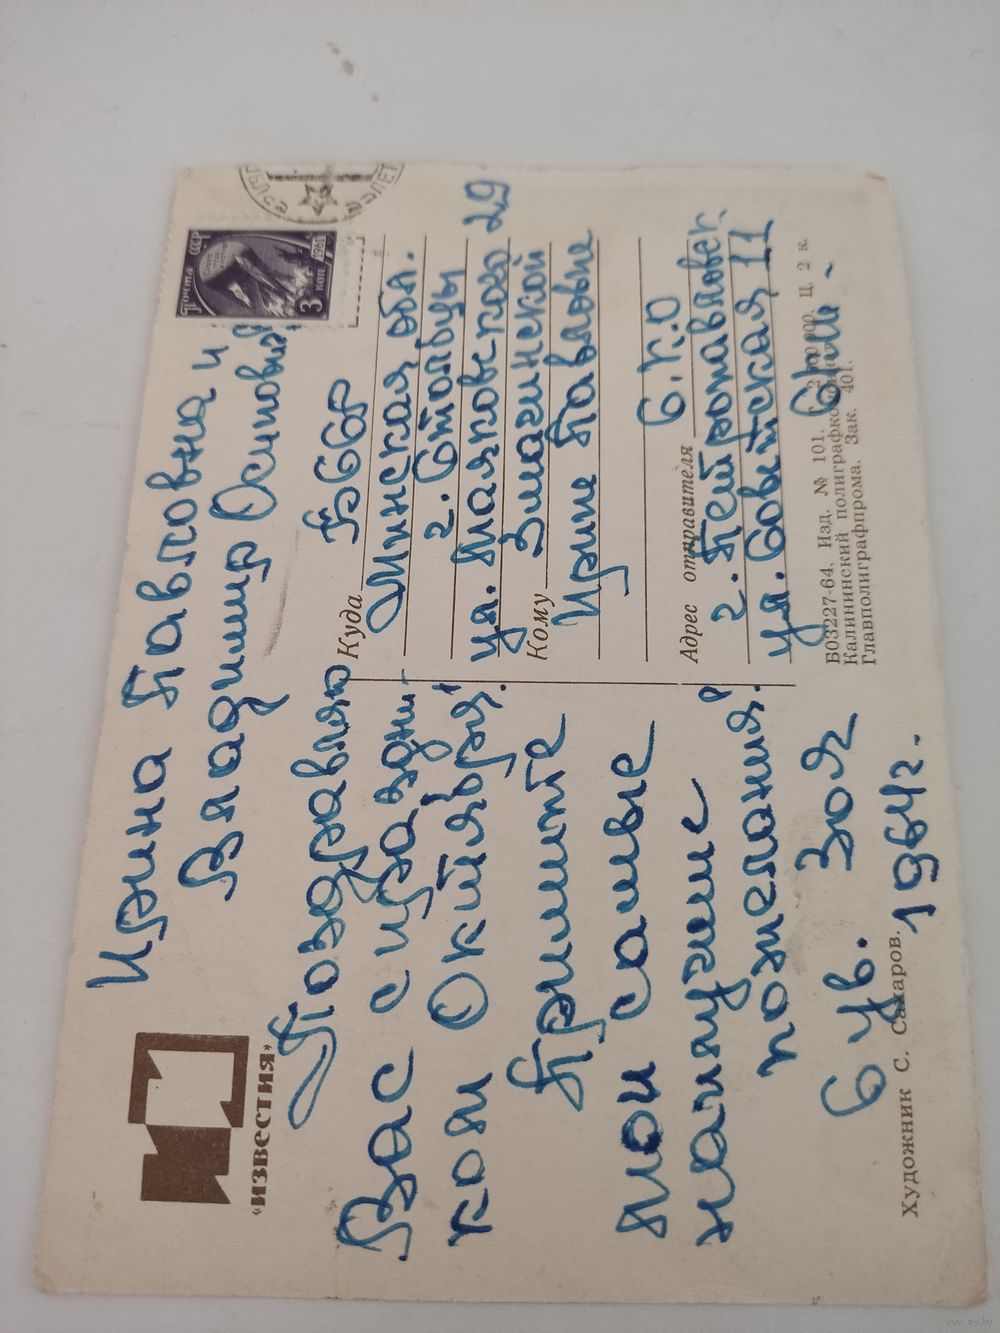 «ИЗВЕСТИЯ»
Ирина Павловна и
Владимир Осипович
Поздравляю
Вас с праздни-
ком Октября!
Примите
мои самые
наилучшие
пожелания.
С ув. Зоя
1964г.
Художник С. Сахаров.
ПОЧТА СССР
3 КОП 1961
Куда БССР
Минская обл.
г. Столбцы
ул. Маяковского 29
Кому Змагинской
Ирине Павловне
С.К.О
Адрес отправителя
г. Петропавловск
ул. Советская 11
Б03227-64. Изд. № 101. Ц. 2 к.
Калининский полиграфкомбинат
Главполиграфпрома. Зак. 401.
www.ay.by